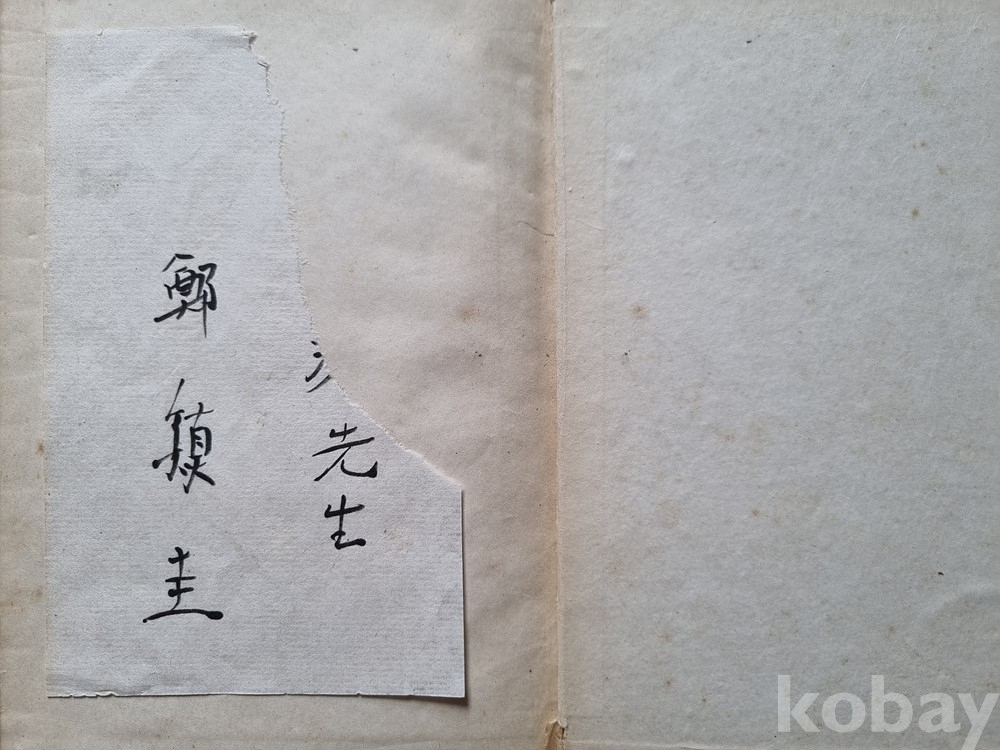 先生
鄭鎭圭
kobay